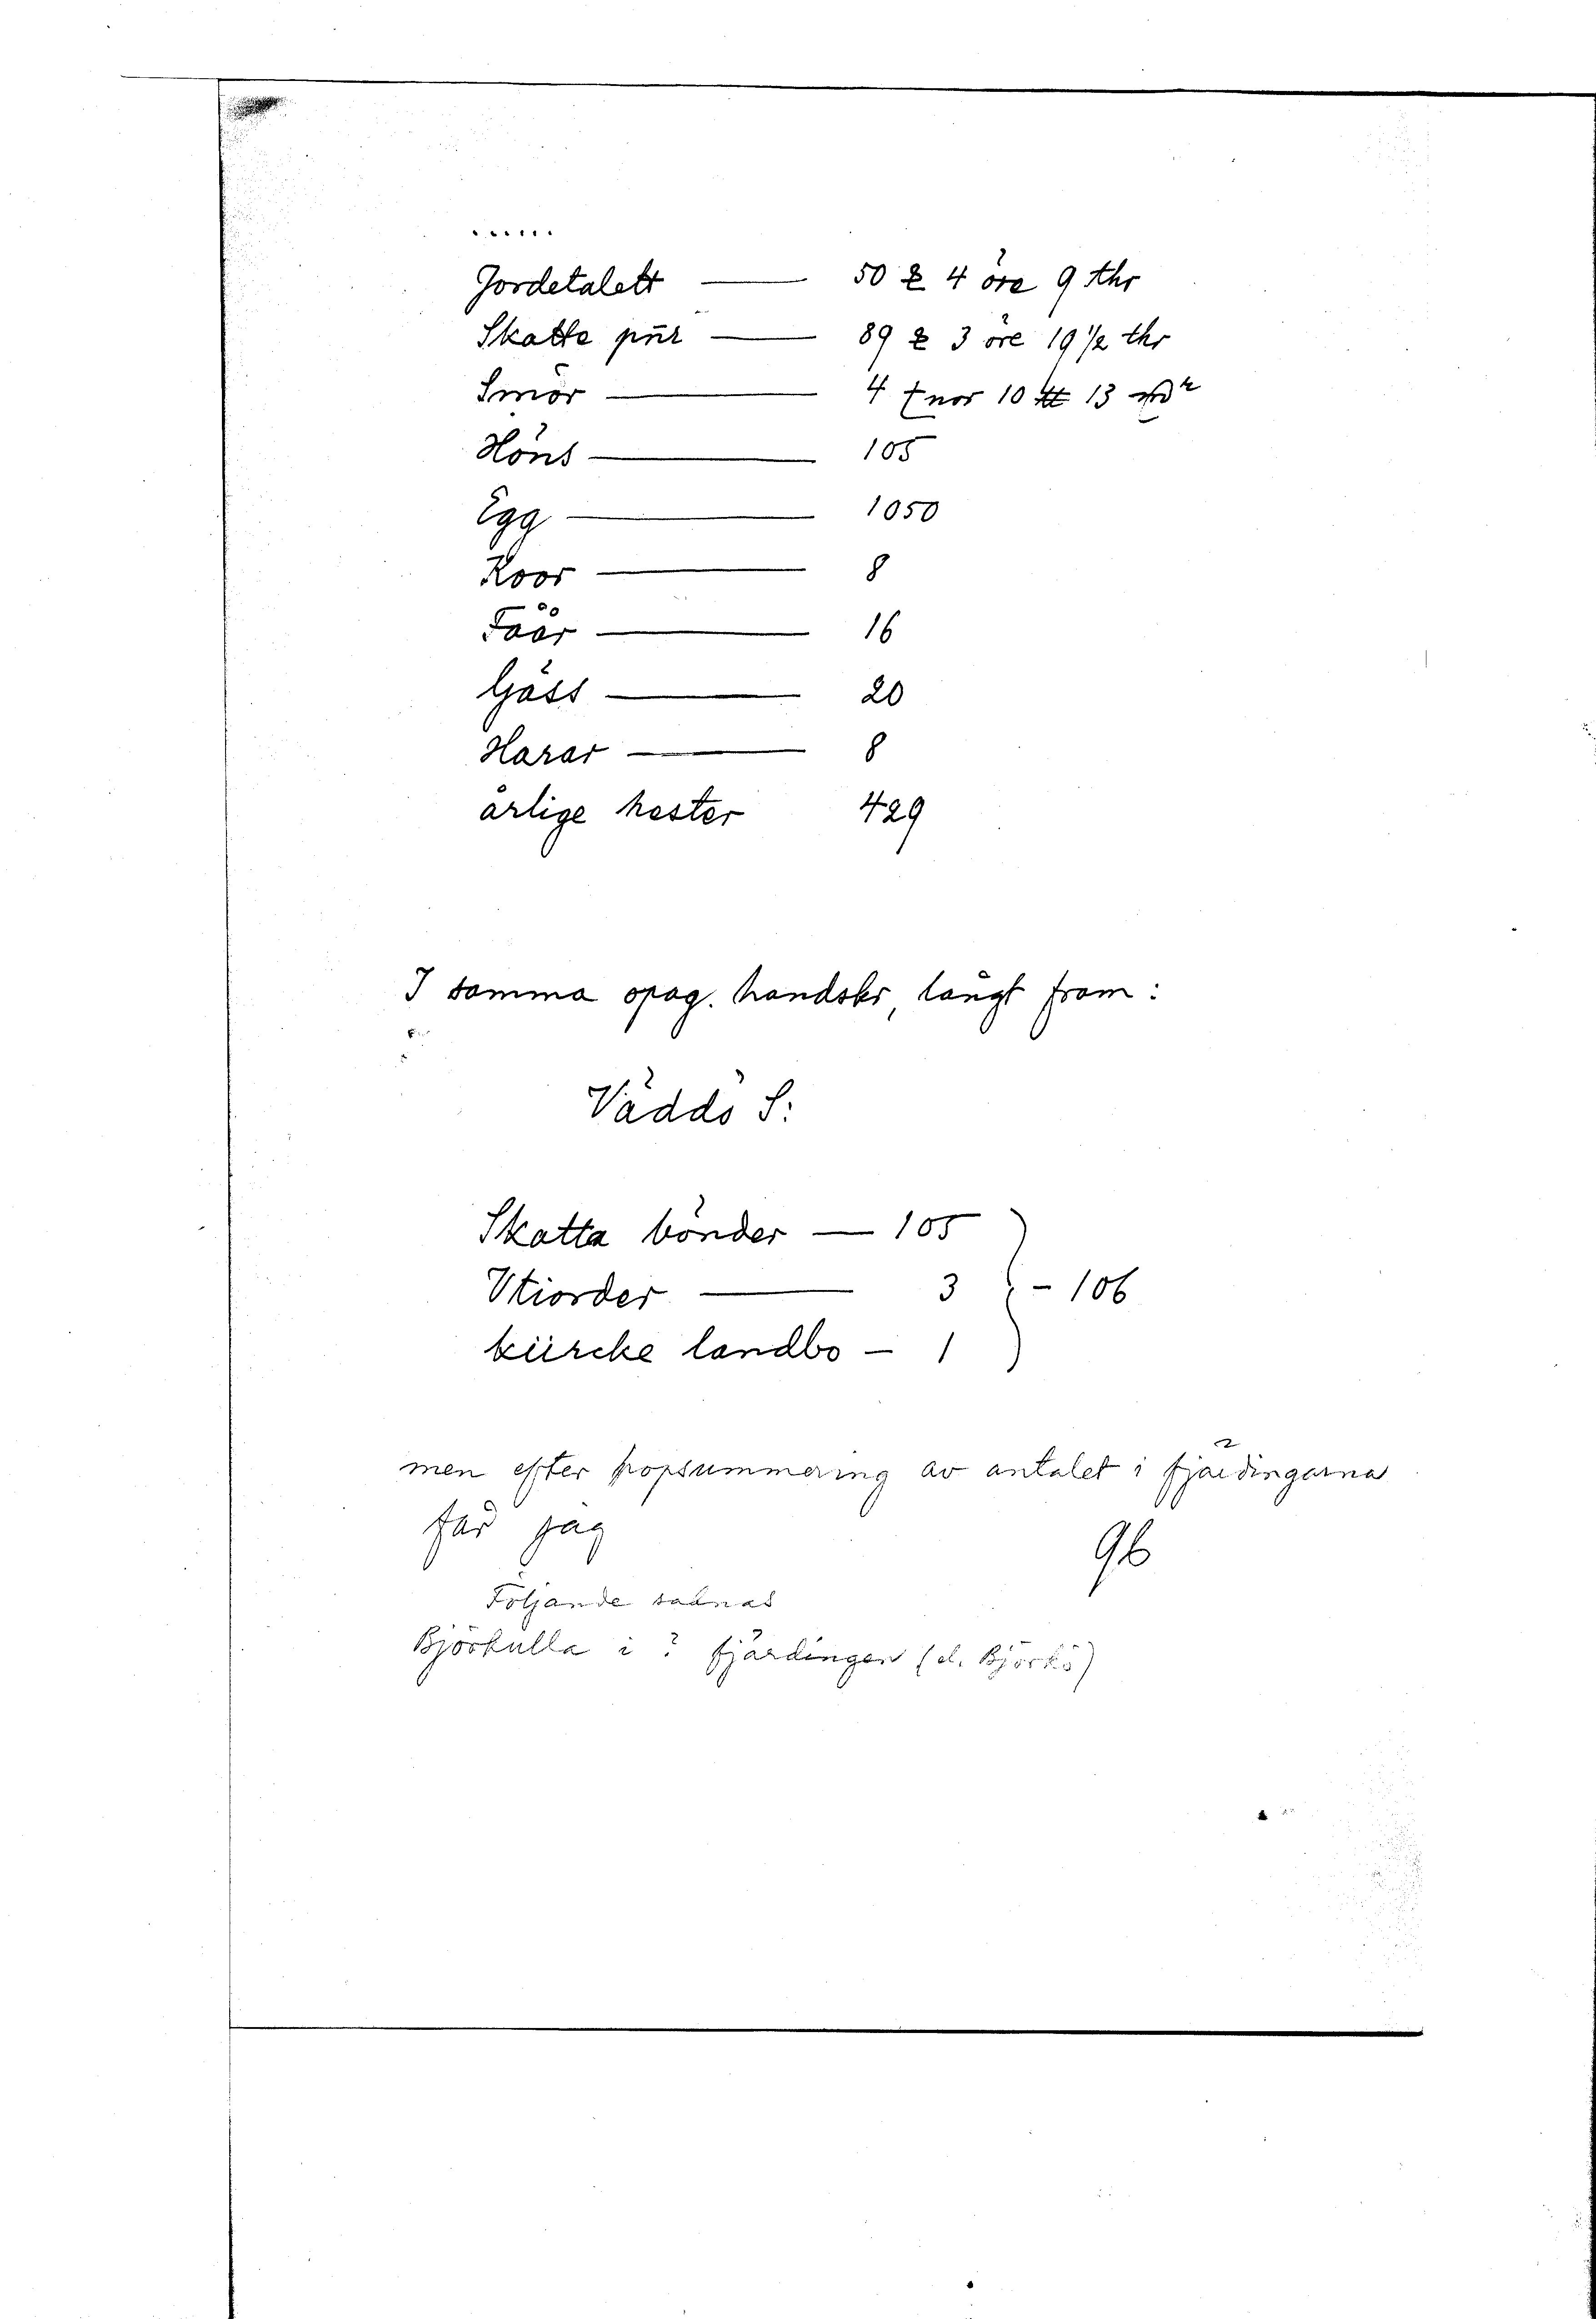 ......
Jordetalett — 50 ₤ 4 öre 9 thr
Skatte pñr — 89 ₤ 3 öre 19 1/2 thr
Smör — 4 tnor 10 ℔ 13
Höns — 105
Egg — 1050
Koor — 8
Fåår — 16
Gäss — 20
Harar — 8
årlige hester 429
I samma opag. handskr, långt fram:
Väddö S:
Skatta bönder — 105
Utiorder — 3 } - 106
kiircke landbo — 1
men efter hopsummering av antalet i fjärdingarna
får jag
96
Följande saknas
Björkulla i ? fjärdingen (el. Björkö)